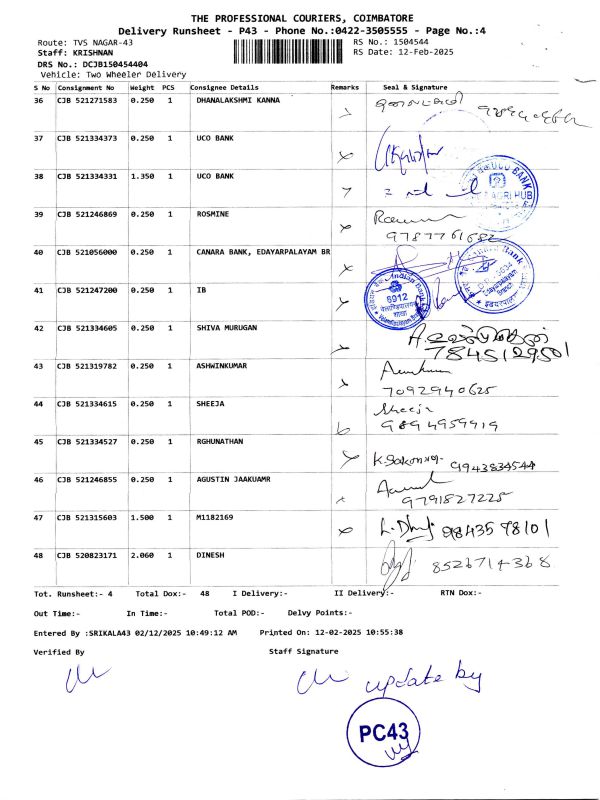 THE PROFESSIONAL COURIERS, COIMBATORE
Delivery Runsheet - P43 - Phone No.:0422-3505555 - Page No.:4
Route: TVS NAGAR-43 RS No.: 1504544
Staff: KRISHNAN RS Date: 12-Feb-2025
DRS No.: DCJB150454404
Vehicle: Two Wheeler Delivery
S No Consignment No Weight PCS Consignee Details Remarks Seal & Signature
36 CJB 521271583 0.250 1 DHANALAKSHMI KANNA
37 CJB 521334373 0.250 1 UCO BANK
38 CJB 521334331 1.350 1 UCO BANK
UCO BANK
AGRI HUB
39 CJB 521246869 0.250 1 ROSMINE
40 CJB 521056000 0.250 1 CANARA BANK, EDAYARPALAYAM BR
41 CJB 521247200 0.250 1 IB
Indian Bank
6912
42 CJB 521334605 0.250 1 SHIVA MURUGAN
7845129501
43 CJB 521319782 0.250 1 ASHWINKUMAR
7092940625
44 CJB 521334615 0.250 1 SHEEJA Sheeja
9894959919
45 CJB 521334527 0.250 1 RGHUNATHAN 9943834544
46 CJB 521246855 0.250 1 AGUSTIN JAAKUAMR
9791827225
47 CJB 521315603 1.500 1 M1182169 98435 98101
48 CJB 520823171 2.060 1 DINESH 8526714368
Tot. Runsheet:- 4 Total Dox:- 48 I Delivery:- II Delivery:- RTN Dox:-
Out Time:- In Time:- Total POD:- Delvy Points:-
Entered By :SRIKALA43 02/12/2025 10:49:12 AM Printed On: 12-02-2025 10:55:38
Verified By Staff Signature
update by
PC43